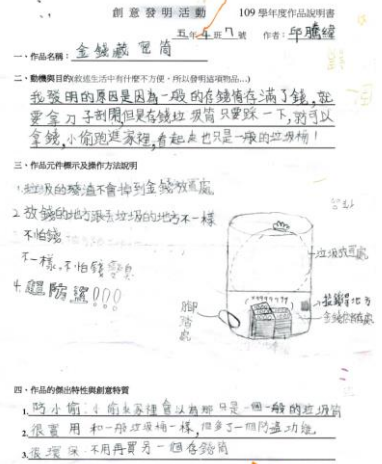 創意發明活動 109學年度作品說明書
五年4班7號 作者：邱騰緯
一、作品名稱：金錢藏寶筒
二、動機與目的(敘述生活中有什麼不方便，所以發明這項物品...)
我發明的原因是因為一般的存錢筒存滿了錢，就
要拿刀子割開但是存錢垃圾筒只要踩一下，就可以
拿錢，小偷跑進家裡，看起來也只是一般的垃圾桶！
三、作品元件標示及操作方法說明
1.垃圾的殘渣不會掉到金錢放置處
2.放錢的地方跟丟垃圾的地方不一樣
不怕錢
不一樣，不怕錢變臭
4.超防盜!!!
垃圾放置處
投錢的地方
金錢存放處
腳踏處
四、作品的傑出特性與創意特質
1.防小偷：小偷來家裡會以為那只是一個一般的垃圾筒
2.很實用 和一般垃圾桶一樣，但多了一個防盜功能
3.很環保：不用再買另一個存錢筒